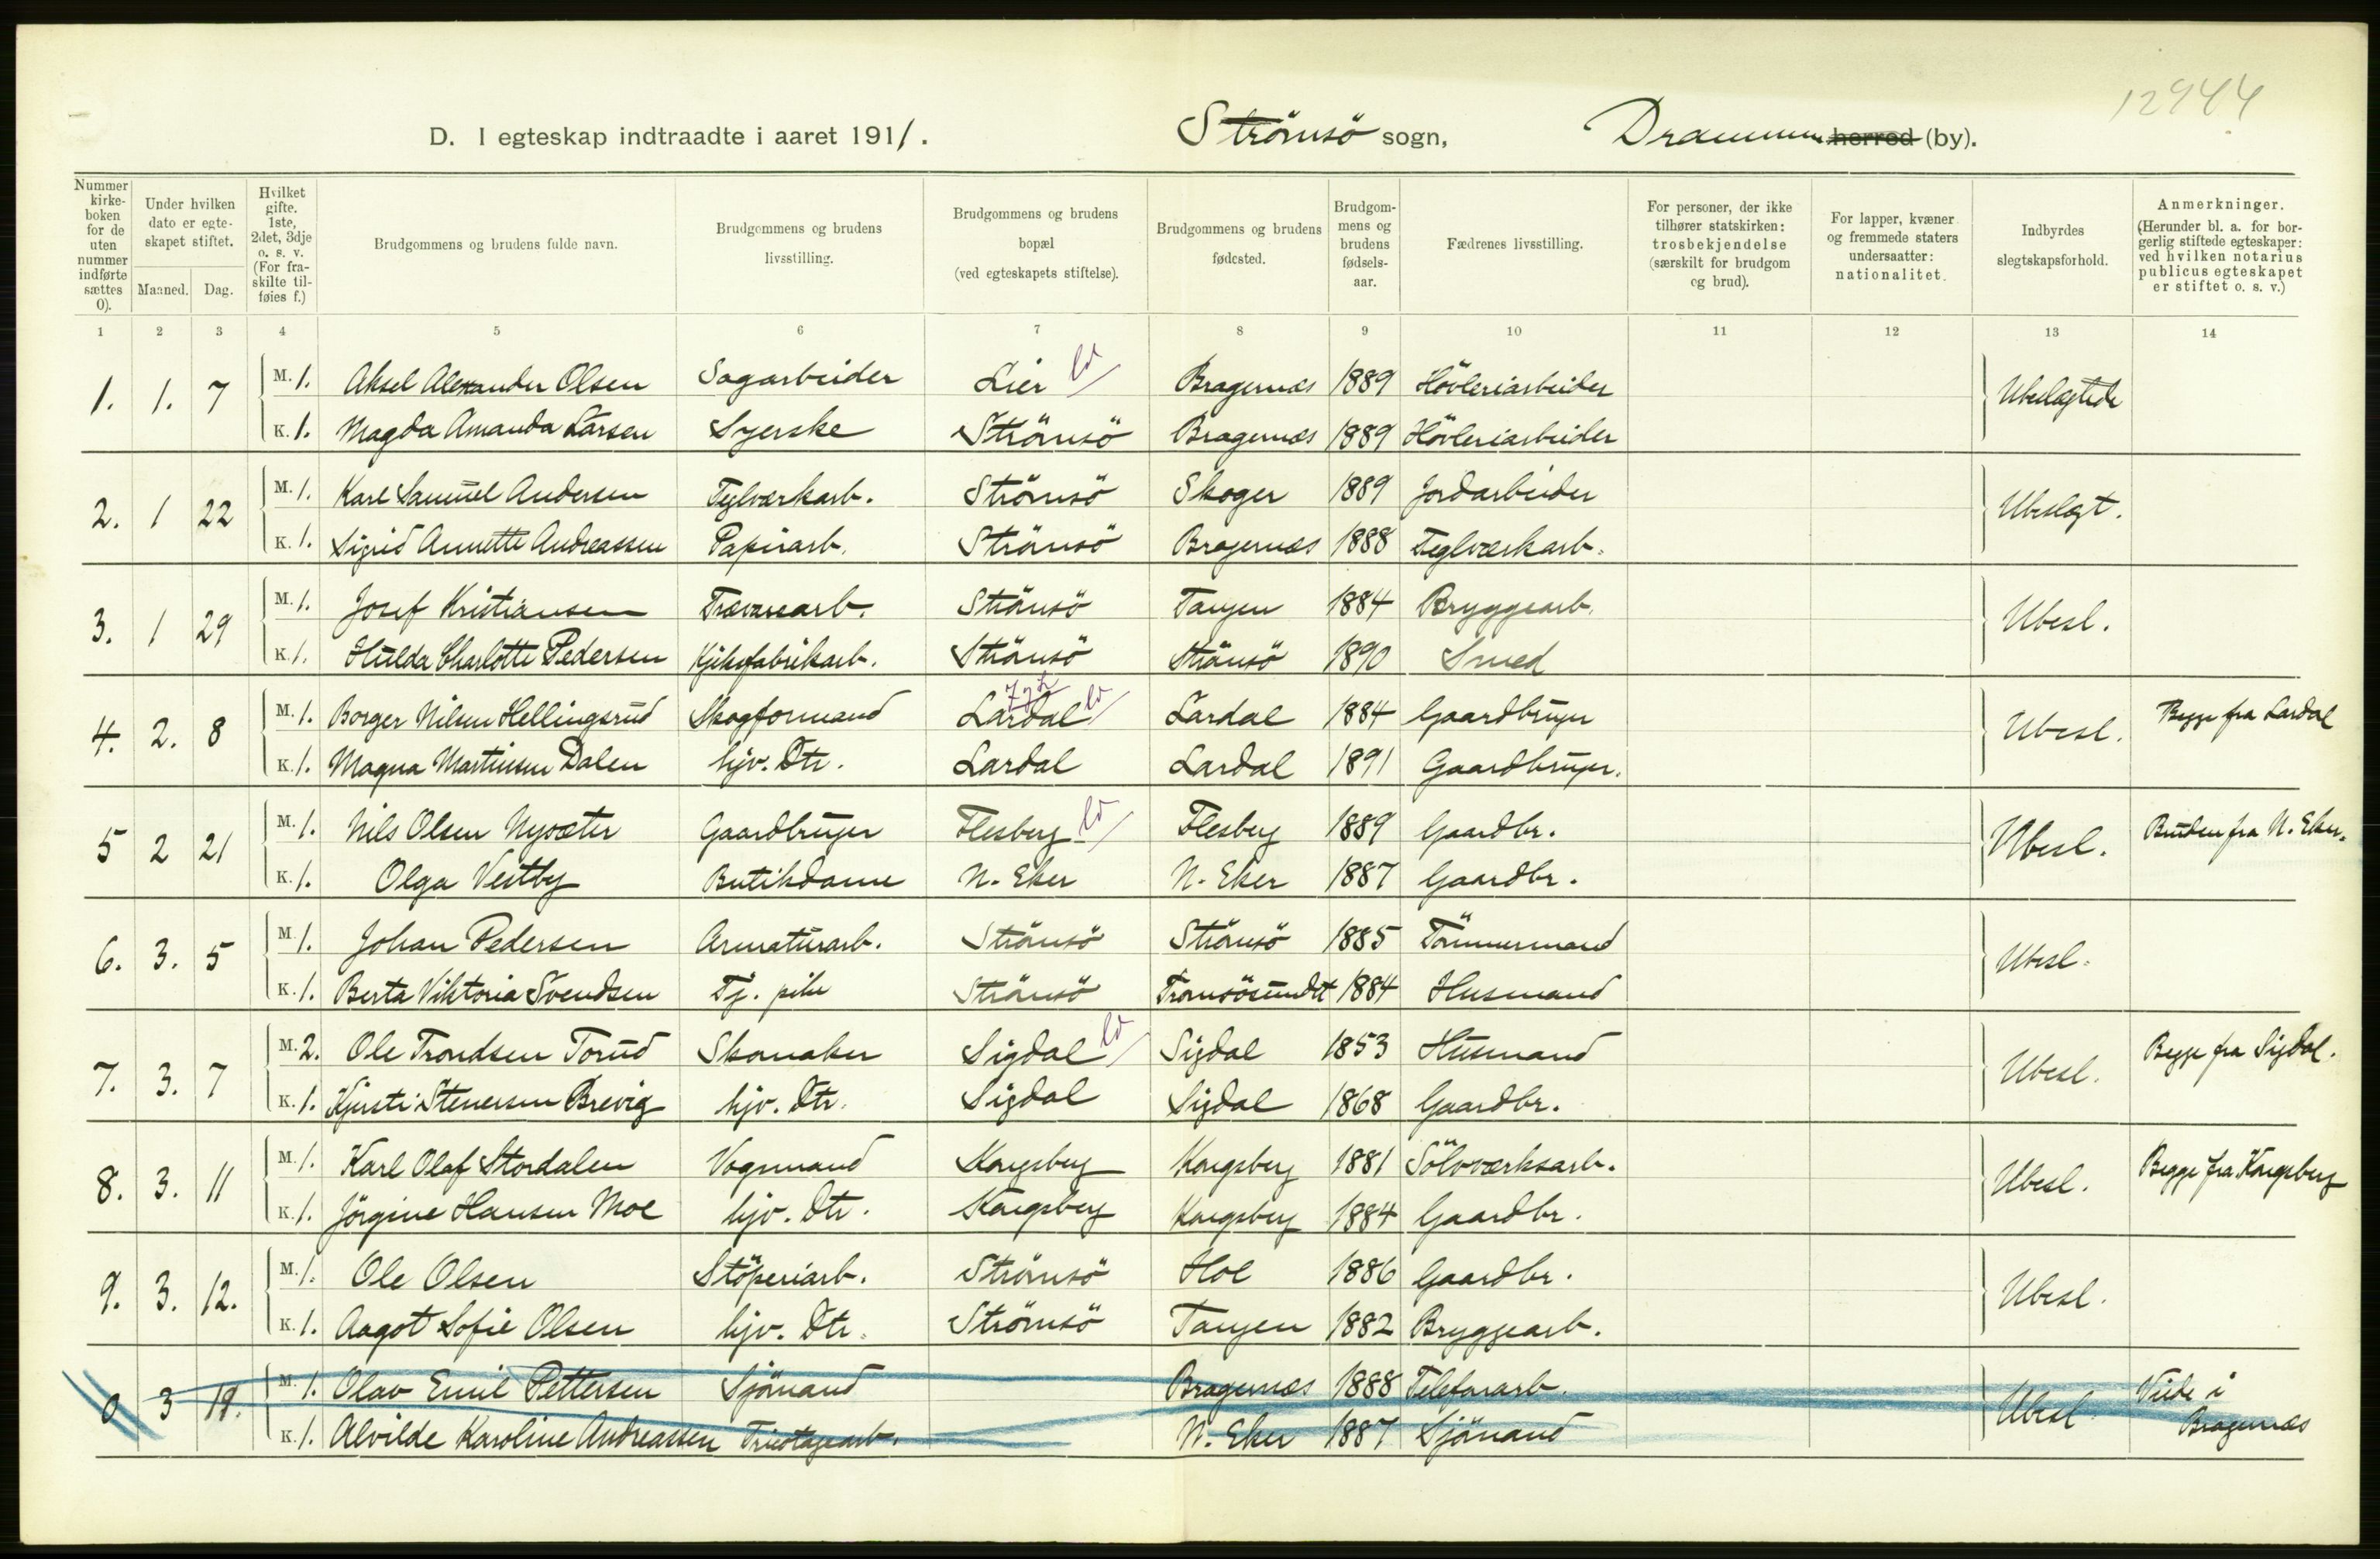 12944
D. I egteskap indtraadte i aaret 1911. Strömsö sogn, Drammen herred (by).
Nummer kirkeboken for de uten nummer indførte sættes 0).
Under hvilken dato er egteskapet stiftet.
Maaned. Dag.
Hvilket gifte. 1ste, 2det, 3dje o. s. v. (For fraskilte tilføies f.)
Brudgommens og brudens fulde navn.
Brudgommens og brudens livsstilling.
Brudgommens og brudens bopæl (ved egteskapets stiftelse).
Brudgommens og brudens fødested.
Brudgommens og brudens fødselsaar.
Fædrenes livsstilling.
For personer, der ikke tilhører statskirken: trosbekjendelse (særskilt for brudgom og brud).
For lapper, kvæner og fremmede staters undersaatter: nationalitet.
Indbyrdes slegtskapsforhold.
Anmerkninger. (Herunder bl. a. for borgerlig stiftede egteskaper: ved hvilken notarius publicus egteskapet er stiftet o. s. v.)
1 2 3 4 5 6 7 8 9 10 11 12 13 14
1. 1. 7 M. 1. Aksel Alexander Olsen Sagarbeider Lier Bragernæs 1889 Hövleriarbeider Ubeslægtede
K. 1. Magda Amanda Larsen Syerske Strömsö Bragernæs 1889 Hövleriarbeider
2. 1 22 M. 1. Karl Samuel Andersen Teglværkarb. Strömsö Skoger 1889 Jordarbeider Ubeslægt.
K. 1. Sigrid Annette Andreassen Papirarb. Strömsö Bragernæs 1888 Teglværkarb.
3. 1 29 M. 1. Josef Kristiansen Trævarearb. Strömsö Tangen 1884 Bryggearb. Ubesl.
K. 1. Hulda Charlotte Pedersen Kjeksfabrikarb. Strömsö Strömsö 1890 Smed
4. 2. 8 M. 1. Borger Nilsen Hellingsrud Skogformand Lardal Lardal 1884 Gaardbruger Ubesl. Begge fra Lardal
K. 1. Magna Martinsen Dalen hjv. Dtr. Lardal Lardal 1891 Gaardbruger.
5 2 21 M. 1. Nils Olsen Nysæter Gaardbruger Flesberg Flesberg 1889 Gaardbr. Ubesl. Bruden fra N. Eker.
K. 1. Olga Vestby Butikdame N. Eker N. Eker 1887 Gaardbr.
6. 3. 5 M. 1. Johan Pedersen Armaturarb. Strömsö Strömsö 1885 Tömmermand Ubesl.
K. 1. Berta Viktoria Svendsen Tj. pike Strömsö Tromsösundet 1884 Husmand
7. 3. 7 M. 2. Ole Trondsen Torud Skomaker Sigdal Sigdal 1853 Husmand Ubesl. Begge fra Sigdal.
K. 1. Kjersti Stenersen Brevig hjv. Dtr. Sigdal Sigdal 1868 Gaardbr.
8. 3. 11 M. 1. Karl Olaf Stordalen Vognmand Kongsberg Kongsberg 1881 Sölvværksarb. Ubesl. Begge fra Kongsberg
K. 1. Jörgine Hansen Moe hjv. Dtr. Kongsberg Kongsberg 1884 Gaardbr.
9. 3. 12. M. 1. Ole Olsen Stöperiarb. Strömsö Hol 1886 Gaardbr. Ubesl.
K. 1. Aagot Sofie Olsen hjv. Dtr. Strömsö Tangen 1882 Bryggearb.
0 3 M. 1. Olav Emil Pettersen Sjömand Bragernæs 1888 Telefonarb. Ubesl Viede i
K. 1. Alvilde Karoline Andreassen Tricotagearb. N. Eker 1887 Sjömand Bragernæs